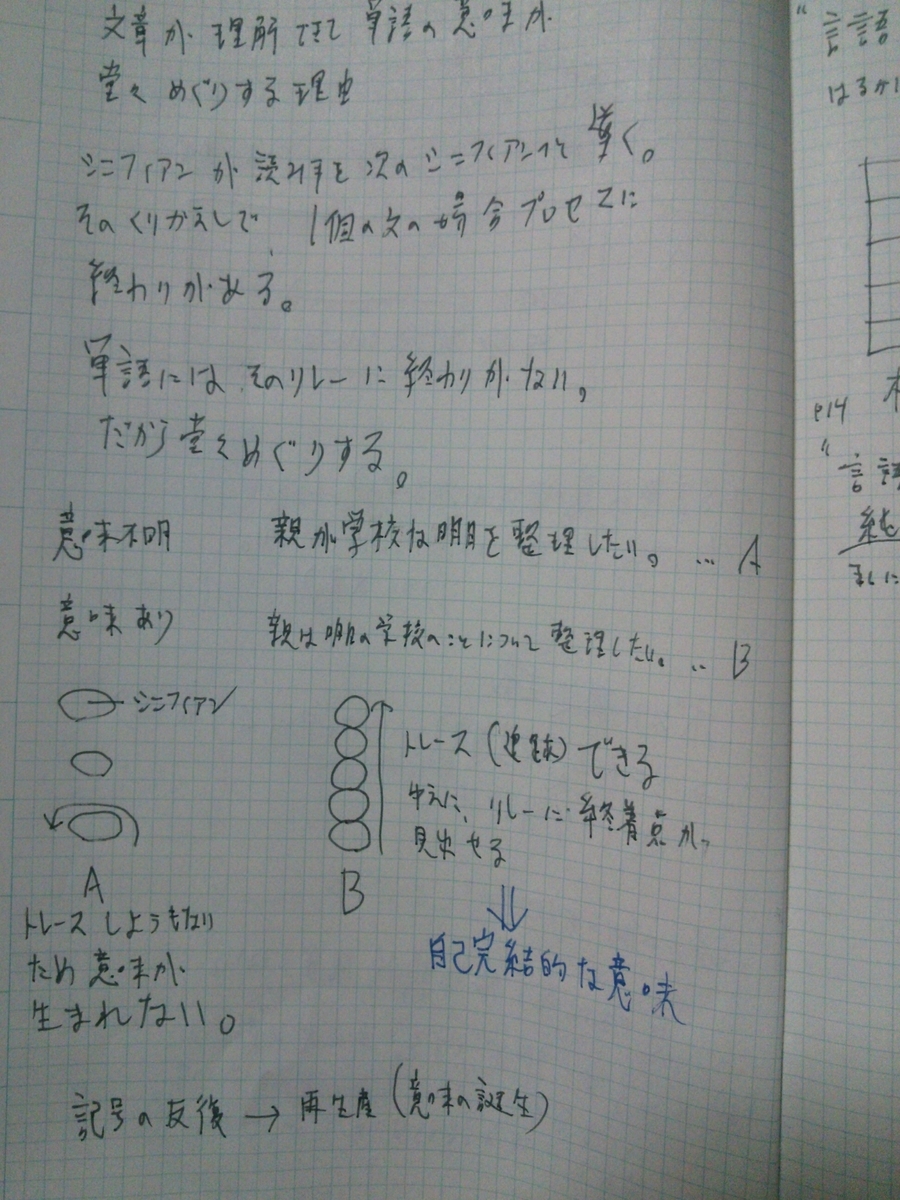 文章が理解できて単語の意味が
堂々めぐりする理由
シニフィアンが読み手を次のシニフィアンへと導く。
そのくりかえしで、1個の文の場合プロセスに
終わりがある。
単語にはそのリレーに終わりがない。
だから堂々めぐりする。
意味不明 親が学校な明日を整理したい。… A
意味あり 親は明日の学校のことについて整理したい。… B
シニフィアン
トレース(追跡)できる
ゆえに、リレーに終着点が
見出せる
A
B
トレースしようもない
ため意味が
生まれない。
自己完結的な意味
記号の反復 → 再生産(意味の誕生)
" 言語
はるか
P14
" 言語